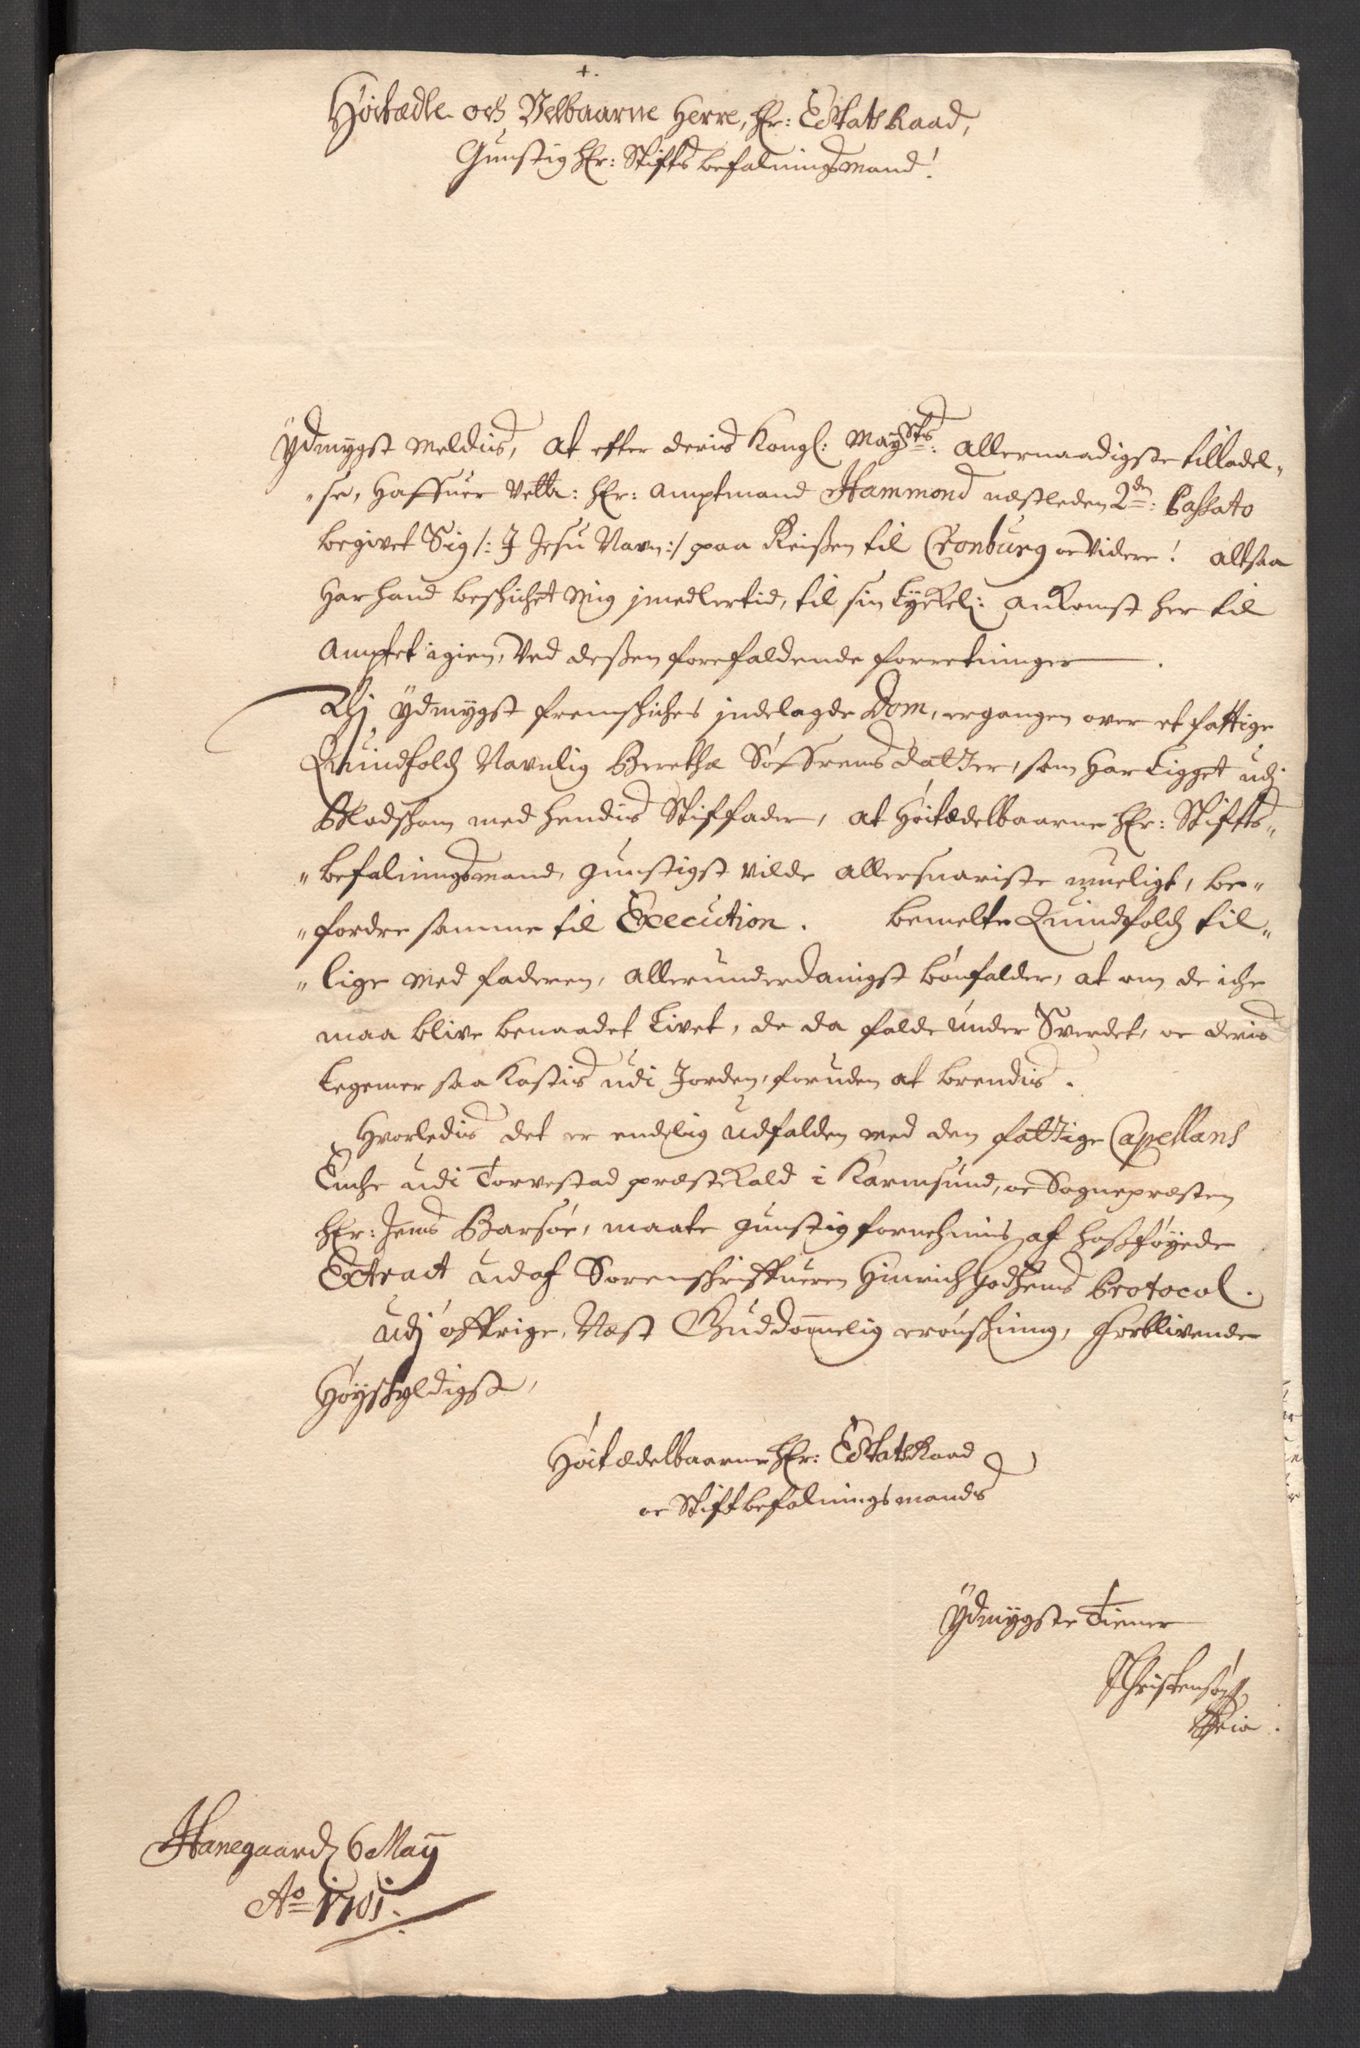 Höitædle och Velbaarne Herre, Hr: Estats Raad,
Gunstig Hr: Stifts befalningsmand!
Ydmygst meldis, at efter deris Kongl: Mayts: allernaadigste tilladel-
se, Haffuer Velb: Hr: Amptmand Hammond næstleden 2den: Passato
begivet Sig /: I Jesu Navn :/ paa Reisen til Cronburg oc Videre! altsaa
har hand beskichet mig imedlertid, til sin lykkel: ankomst her til
Amptet igien, Ved dessen forefaldende forretninger.
Thj ydmygst fremskiches indelagde Dom, ergangen over et fattige
Quindfolch Navnlig Berethe Söffrensdatter, som har ligget udj
Blodskam med hendis Stiffader, at Höitædelbaarne Hr: Stiffts-
befalningsmand, gunstigst vilde allersnariste mueligt, be-
fordre samme til Execution. bemelte Quindfolch til-
lige med faderen, allerunderdanigst bönfalder, at om de iche
maa blive benaadet livet, de da falde under Sverdet, oc deris
legemer saa kastis udi Jorden, foruden at brendis.
Hvorledis det er endelig udfalden med den fattige Capellans
Enche udi Torvestad præstekald i Karmsund, oc Sognepræsten
Hr: Jens Barsöe, maatte gunstig fornehmis af hosföyede
Extract udaf Sorenskriffueren Hinrich Godtzens Protocol.
udj öffrige, Næst Guddommelig erönskning, forblivende
Höyskyldigst,
Höitædelbaarne Hr: Estats Raad
oc Stiftbefalningsmands
Ydmygste Tiener
Christensön
Hanegaard 6 May
Ao 1701.